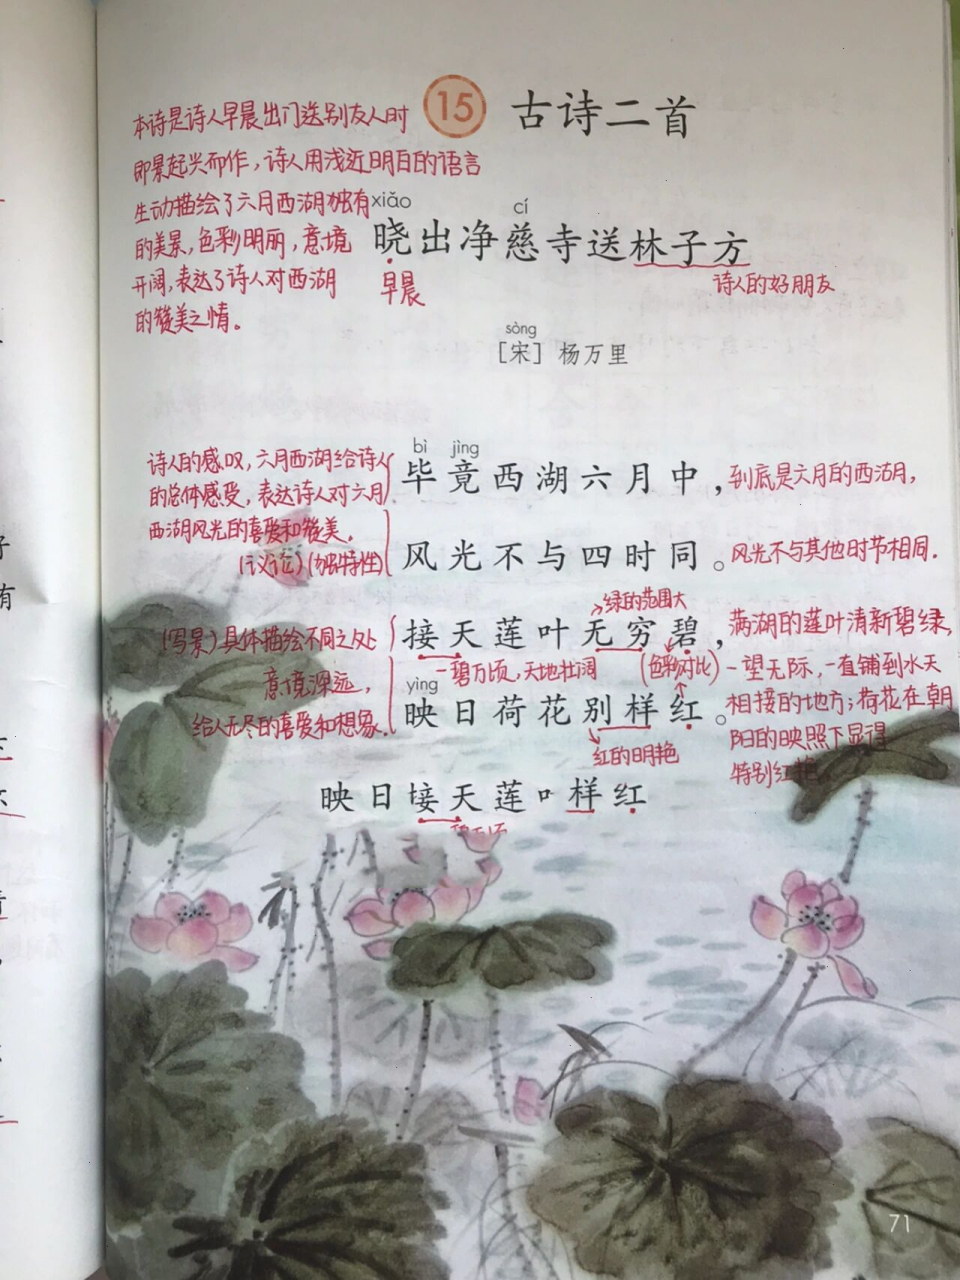 15 古诗二首
本诗是诗人早晨出门送别友人时
即景起兴而作，诗人用浅近明白的语言
生动描绘了六月西湖独有
的美景，色彩明丽，意境
开阔，表达了诗人对西湖
的赞美之情。
xiǎo cí
晓出净慈寺送林子方
早晨
诗人的好朋友
sòng
［宋］杨万里
诗人的感叹，六月西湖给诗人
的总体感受，表达诗人对六月
西湖风光的喜爱和赞美。
(议论)(独特性)
bì jìng
毕竟西湖六月中，
到底是六月的西湖月，
风光不与四时同。
风光不与其他时节相同.
绿的范围大
(写景)具体描绘不同之处
接天莲叶无穷碧，
满湖的莲叶清新碧绿，
一碧万顷，天地壮阔
(色彩对比)
一望无际，一直铺到水天
意境深远，
yìng
映日荷花别样红。
相接的地方；荷花在朝
给人无尽的喜爱和想象.
红的明艳
阳的映照下显得
特别红艳
映日接天莲 样红
71